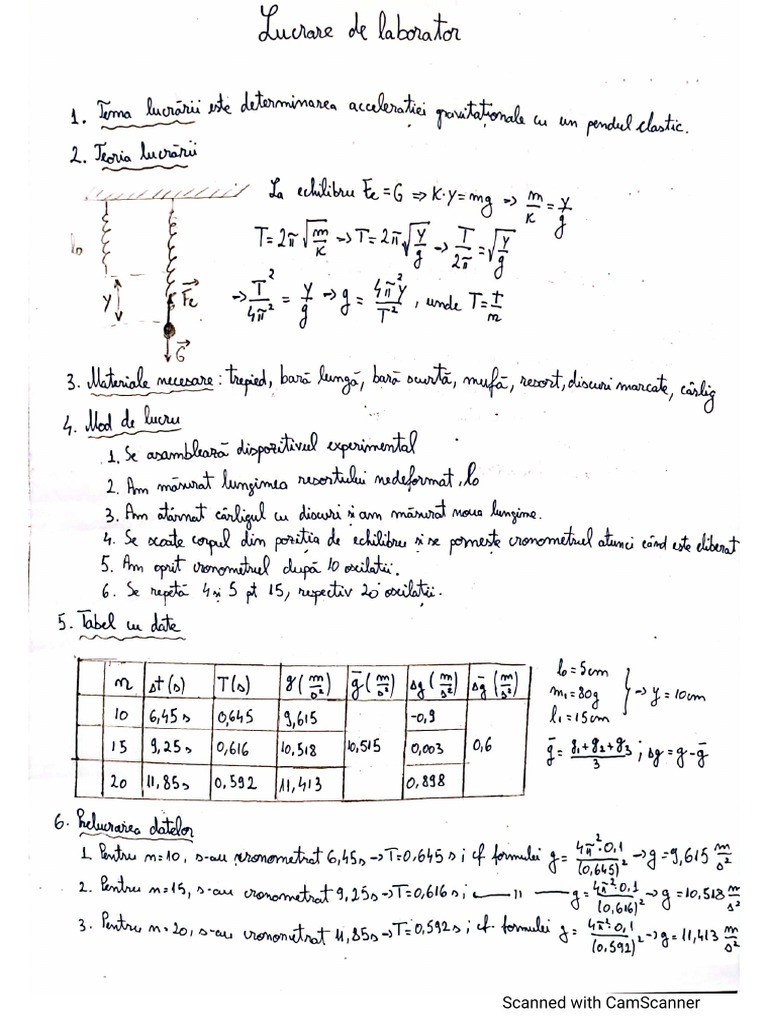 Lucrare de laborator
1. Tema lucrării este determinarea accelerației gravitaționale cu un pendul elastic.
2. Teoria lucrării
La echilibru Fe = G => K·y = mg -> m/K = y/g
l0
T = 2π√(m/K) -> T = 2π√(y/g) -> T/2π = √(y/g)
y Fe
-> T²/4π² = y/g -> g = 4π²y/T², unde T = t/n
G
3. Materiale necesare: trepied, bară lungă, bară scurtă, mufă, resort, discuri marcate, cârlig
4. Mod de lucru
1. Se asamblează dispozitivul experimental
2. Am măsurat lungimea resortului nedeformat, l0
3. Am atârnat cârligul cu discuri și am măsurat noua lungime.
4. Se scoate corpul din poziția de echilibru și se pornește cronometrul atunci când este eliberat
5. Am oprit cronometrul după 10 oscilații.
6. Se repetă 4 și 5 pt 15, respectiv 20 oscilații.
5. Tabel cu date
n Δt(s) T(s) g(m/s²) ḡ(m/s²) Δg(m/s²) Δ̄g(m/s²)
10 6,45s 0,645 9,615 -0,9
15 9,25s 0,616 10,518 10,515 0,003 0,6
20 11,85s 0,592 11,413 0,898
l0 = 5cm
m1 = 80g -> y = 10cm
l1 = 15cm
ḡ = (g1+g2+g3)/3 ; Δg = g-ḡ
6. Prelucrarea datelor
1. Pentru n=10, s-au cronometrat 6,45s -> T=0,645s ; cf formulei g = 4π²·0,1/(0,645)² -> g = 9,615 m/s²
2. Pentru n=15, s-au cronometrat 9,25s -> T=0,616s ; —— 11 —— g = 4π²·0,1/(0,616)² -> g = 10,518 m/s²
3. Pentru n=20, s-au cronometrat 11,85s -> T=0,592s ; cf. formulei g = 4π²·0,1/(0,592)² -> g = 11,413 m/s²
Scanned with CamScanner